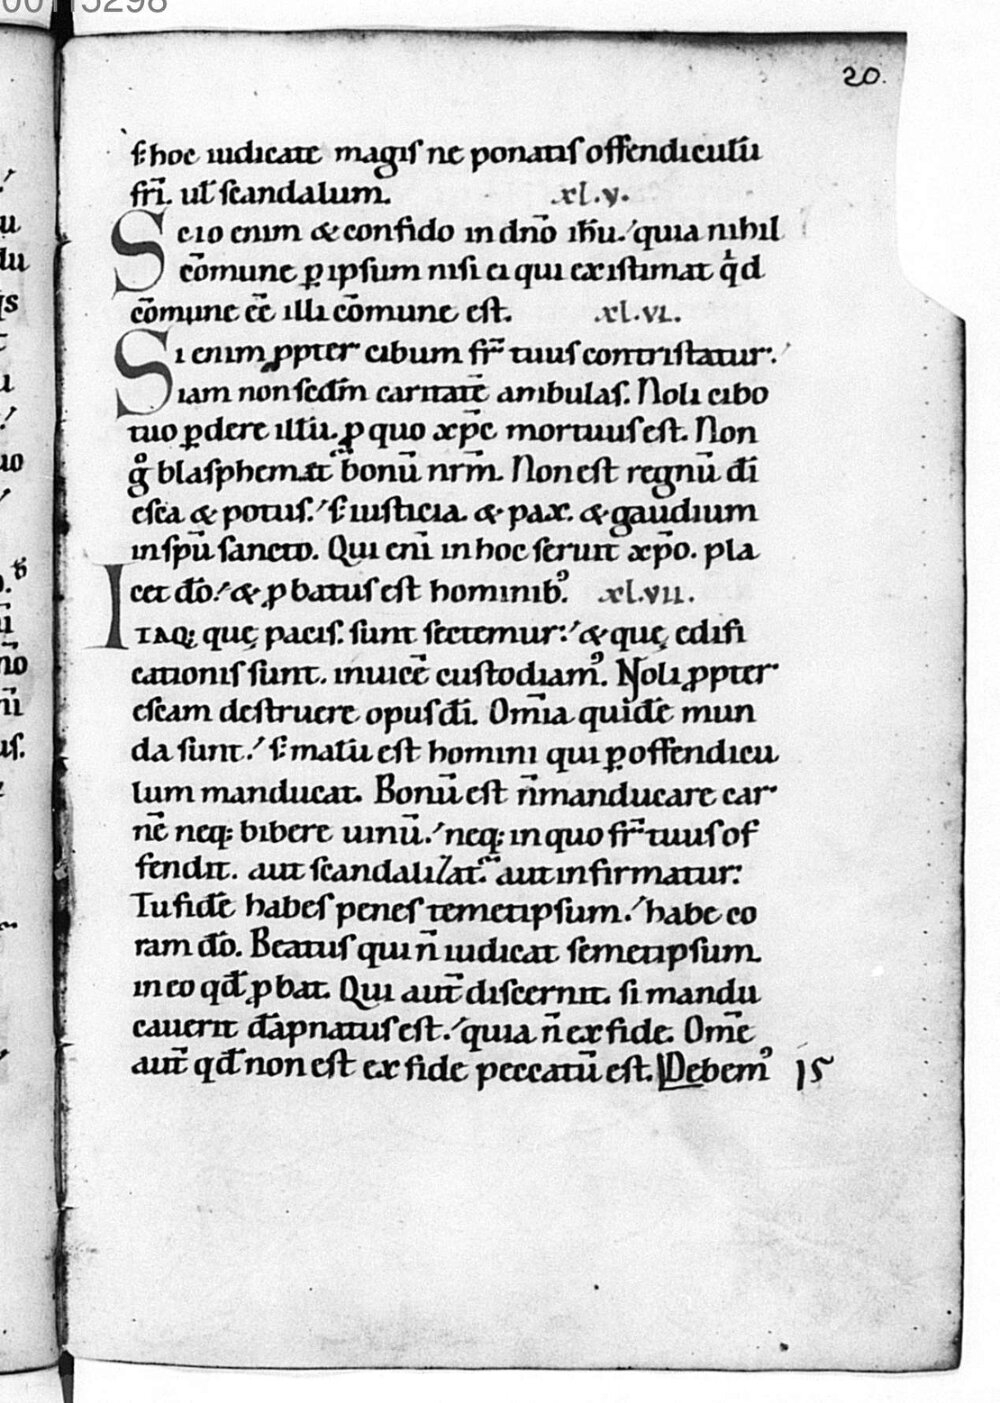 20.
s; hoc iudicate magis ne ponatis offendiculū
fr̄i. ul̄ scandalum. .xl.v.
Scio enim & confido in dn̄o ih̄u. quia nihil
cōmune ꝑ ipsum nisi ei qui existimat qd
cōmune ēē illi cōmune est. .xl.vi.
Si enim ꝓpter cibum fr̄ tuus contristatur.
iam non scdm̄ caritatē ambulas. Noli cibo
tuo ꝑdere illū. ꝓ quo xp̄c mortuus est. Non
g° blasphemat̄ bonū nr̄m. Non est regnū dī
esca & potus. s; iusticia. & pax. & gaudium
in spū sancto. Qui enī in hoc seruit xp̄o. pla
cet dō. & ꝓbatus est hominib᾿. xl.vii.
ITAQ; quę pacis. sunt sectemur. & quę edifi
cationis sunt. inuicē custodiam᾿. Noli ꝓpter
escam destruere opus dī. Om̄ia quidē mun
da sunt. s; malū est homini qui ꝑ offendicu
lum manducat. Bonū est n̄ manducare car
nē neq; bibere uinū. neq; in quo fr̄ tuus of
fendit. aut scandalizat̄ aut infirmatur.
Tu fidē habes penes temetipsum. habe co
ram dō. Beatus qui n̄ iudicat semetipsum
in eo qđ ꝓbat. Qui aut̄ discernit. si mandu
cauerit dāpnatus est. quia n̄ ex fide. Om̄e
aut̄ qđ non est ex fide peccatū est. Debem᾿ 15